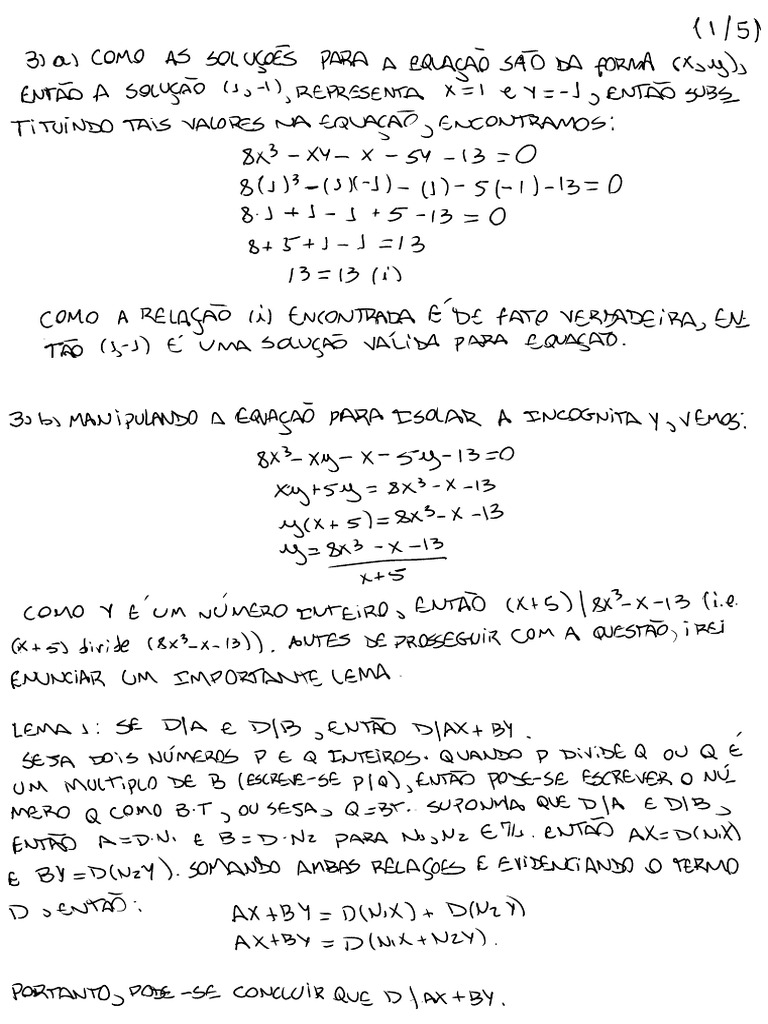 (1/5)
3) a) COMO AS SOLUÇÕES PARA A EQUAÇÃO SÃO DA FORMA (x,y),
ENTÃO A SOLUÇÃO (1,-1), REPRESENTA X=1 e Y=-1, ENTÃO SUBS
TITUINDO TAIS VALORES NA EQUAÇÃO, ENCONTRAMOS:
8x³ - xy - x - 5y - 13 = 0
8(1)³ - (1)(-1) - (1) - 5(-1) - 13 = 0
8·1 + 1 - 1 + 5 - 13 = 0
8 + 5 + 1 - 1 = 13
13 = 13 (i)
COMO A RELAÇÃO (i) ENCONTRADA É DE FATO VERDADEIRA, EN-
TÃO (1,-1) É UMA SOLUÇÃO VÁLIDA PARA EQUAÇÃO.
3) b) MANIPULANDO A EQUAÇÃO PARA ISOLAR A INCOGNITA Y, VEMOS:
8x³ - xy - x - 5y - 13 = 0
xy + 5y = 8x³ - x - 13
y(x + 5) = 8x³ - x - 13
y = 8x³ - x - 13
x + 5
COMO Y É UM NÚMERO INTEIRO, ENTÃO (x+5) | 8x³ - x - 13 (i.e.
(x+5) divide (8x³ - x - 13)). ANTES DE PROSSEGUIR COM A QUESTÃO, IREI
ENUNCIAR UM IMPORTANTE LEMA.
LEMA 1: SE D|A E D|B, ENTÃO D|AX + BY.
SEJA DOIS NÚMEROS P E Q INTEIROS. QUANDO P DIVIDE Q OU Q É
UM MULTIPLO DE B (ESCREVE-SE P|Q), ENTÃO PODE-SE ESCREVER O NÚ
MERO Q COMO B·T, OU SEJA, Q=BT. SUPONHA QUE D|A E D|B,
ENTÃO A = D·N₁ E B = D·N₂ PARA N₁, N₂ ∈ ℤ. ENTÃO AX = D(N₁X)
E BY = D(N₂Y). SOMANDO AMBAS RELAÇÕES E EVIDENCIANDO O TERMO
D, ENTÃO:
AX + BY = D(N₁X) + D(N₂Y)
AX + BY = D(N₁X + N₂Y).
PORTANTO, PODE-SE CONCLUIR QUE D|AX + BY.